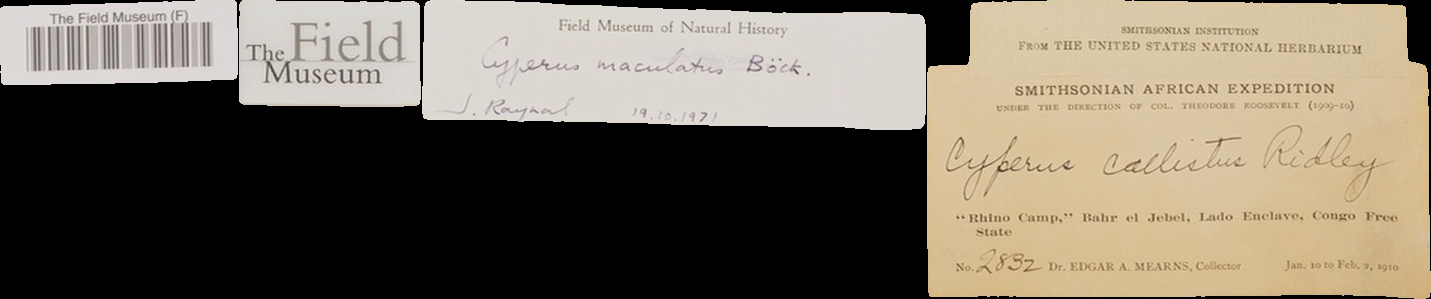 The Field Museum (F)
The Field
Museum
Field Museum of Natural History
Cyperus maculatus Böck.
J. Raynal 19.10.1971
SMITHSONIAN INSTITUTION
FROM THE UNITED STATES NATIONAL HERBARIUM
SMITHSONIAN AFRICAN EXPEDITION
UNDER THE DIRECTION OF COL. THEODORE ROOSEVELT (1909-10)
Cyperus callistus Ridley
"Rhino Camp," Bahr el Jebel, Lado Enclave, Congo Free
State
No. 2832 Dr. EDGAR A. MEARNS, Collector Jan. 10 to Feb. 2, 1910